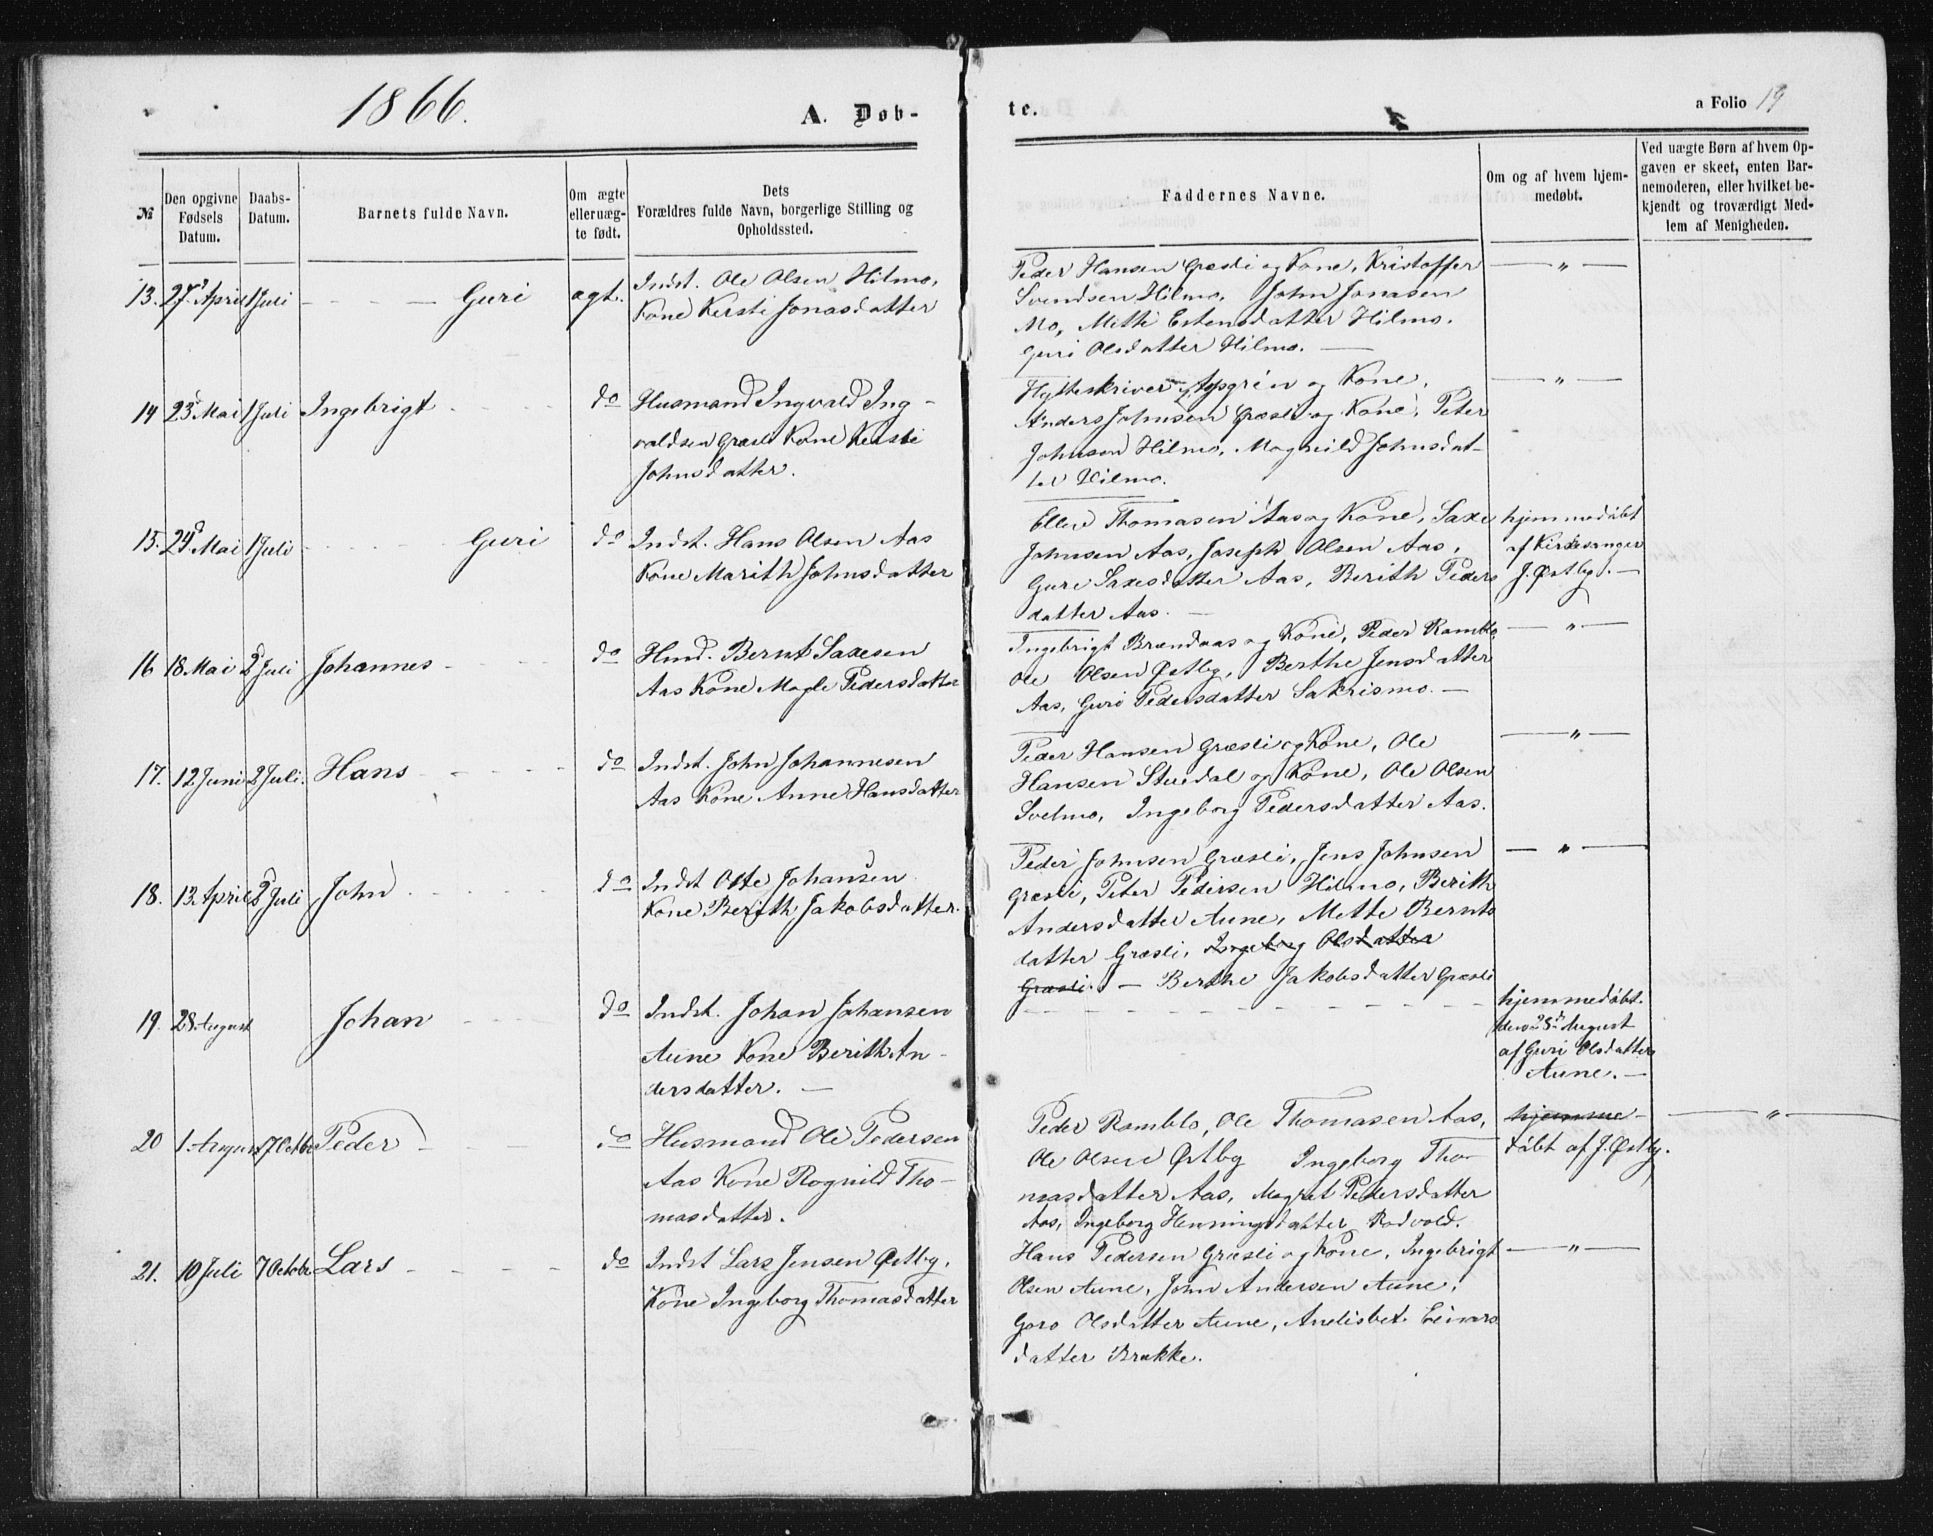 1866.
A. Døb-
te.
a Folio 19
№
Den opgivne Fødsels Datum.
Daabs-Datum.
Barnets fulde Navn.
Om ægte eller uæg-te født.
Dets Forældres fulde Navn, borgerlige Stilling og Opholdssted.
Faddernes Navne.
Om og af hvem hjem-medøbt.
Ved uægte Børn af hvem Op-gaven er skeet, enten Bar-nemoderen, eller hvilket be-kjendt og troværdigt Med-lem af Menigheden.
13. 27d April 1 Juli - - - - Guri ægt.
Indst. Ole Olsen Hilmo,
Kone Kersti Jonasdatter
Peder Hansen Græsli og Kone, Kristoffer
Svendsen Hilmo, John Jonasen
Mo, Mette Estensdatter Hilmo.
Guri Olsdatter Hilmo. —
— " —
14 23d Mai 1 Juli Ingebrigt - - - do
Husmand Ingvald Ing-
valdsen Græsli Kone Kersti
Johnsdatter.
Hytteskriver Aspgrén og Kone,
Anders Johnsen Græsli og Kone, Peter
Johnsen Hilmo, Magnild Johnsdat-
ter Hilmo.
— " —
15. 24d Mai 1 Juli - - - - Guri do
Indst. Hans Olsen Aas
Kone Marith Johnsdatter
Ellev Thomasen Aas og Kone, Saxe
Johnsen Aas, Joseph Olsen Aas,
Guri Saxesdatter Aas, Berith Peders
datter Aas. —
hjemmedøbt
af Kirkesanger
J. Østby. —
16 18. Mai 2d Juli Johannes - - - do
Hmd. Bernt Saxesen
Aas Kone Magli Pedersdatter
Ingebrigt Brændaas og Kone, Peder Ramblo,
Ole Olsen Østby, Berthe Jensdatter
Aas, Guri Pedersdatter Sakrismo. —
— " —
17. 12 Juni 2 Juli. Hans - - - - do
Indst. John Johannesen
Aas Kone Anne Hansdatter
Peder Hansen Græsli og Kone, Ole
Hansen Stuedal og Kone, Ole Olsen
Svelmo, Ingeborg Pedersdatter Aas.
— " —
18. 13. April 2d Juli John - - - - do
Indst Otte Johansen
Kone Berith Jakobsdatter.
Peder Johnsen Græsli, Jens Johnsen
Græsli, Peter Pedersen Hilmo, Berith
Andersdatter Aune, Mette Bernts
datter Græsli, Ingeborg Olsdatter
Græsli. — Berthe Jakobsdatter Græsli
— " —
19. 28. August Johan - - - do
Indst. Johan Johansen
Aune Kone Berith An-
dersdatter. —
- - - - - - - -
hjemmedøbt.
den 28d August
af Guri Olsdatter
Aune. —
20 1. August 7 Octbr Peder - - - do
Husmand Ole Pedersen
Aas Kone Rognild Tho-
masdatter.
Peder Ramblo, Ole Thomasen Aas,
Ole Olsen Østby Ingeborg Tho-
masdatter Aas, Magret Pedersdatter
Aas, Ingeborg Henningsdatter Rodvold.
hjemme-
døbt af J. Østby.
— " —
21. 10 Juli 7 Octobr Lars - - - - do
Indst Lars Jensen Østby,
Kone Ingeborg Thomasdatter
Hans Pedersen Græsli og Kone, Ingebrigt
Olsen Aune, John Andersen Aune,
Goro Olsdatter Aune, Anelisbet Einars
datter Brække.
— " —